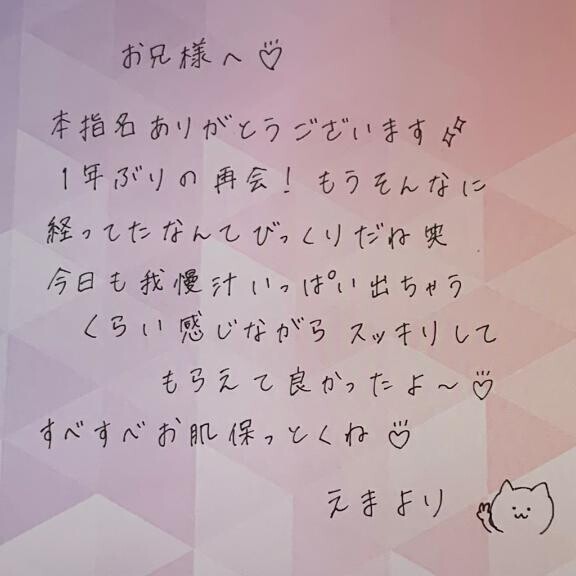 お兄様へ♡
本指名ありがとうございます✨
1年ぶりの再会！もうそんなに
経ってたなんてびっくりだね笑
今日も我慢汁いっぱい出ちゃう
くらい感じながらスッキリして
もらえて良かったよ〜♡
すべすべお肌保っとくね♡
えまより